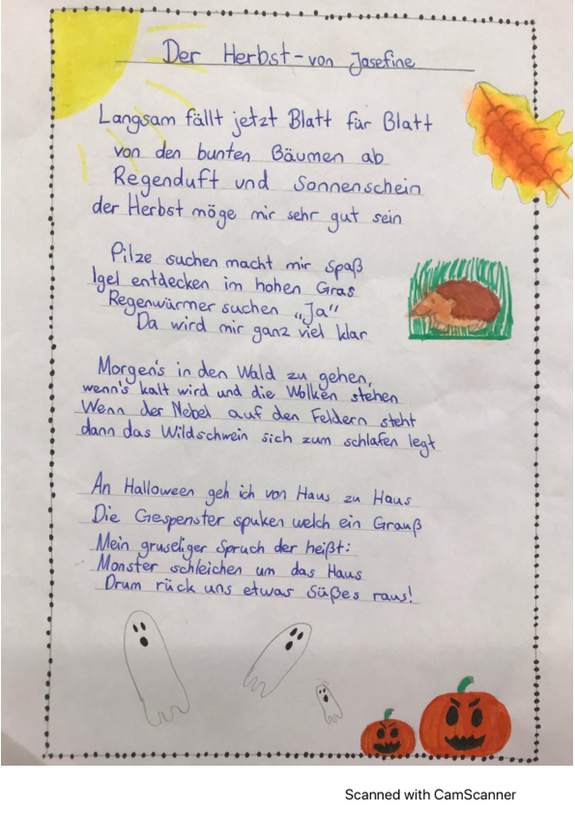 Der Herbst - von Josefine
Langsam fällt jetzt Blatt für Blatt
von den bunten Bäumen ab
Regenduft und Sonnenschein
der Herbst möge mir sehr gut sein
Pilze suchen macht mir Spaß
Igel entdecken im hohen Gras
Regenwürmer suchen „Ja"
Da wird mir ganz viel klar
Morgen's in den Wald zu gehen,
wenn's kalt wird und die Wolken stehen
Wenn der Nebel auf den Feldern steht
dann das Wildschwein sich zum schlafen legt
An Halloween geh ich von Haus zu Haus
Die Gespenster spuken welch ein Grauß
Mein gruseliger Spruch der heißt:
Monster schleichen um das Haus
Drum rück uns etwas Süßes raus!
Scanned with CamScanner